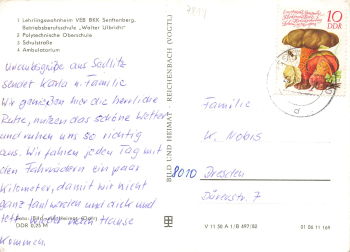 1 Lehrlingswohnheim VEB BKK Senftenberg,
Betriebsberufsschule „Walter Ulbricht"
2 Polytechnische Oberschule
3 Schulstraße
4 Ambulatorium
Urlaubsgrüße aus Sedlitz
sendet Karla u. Familie
Wir genießen hier die herrliche
Ruhe, nutzen das schöne Wetter
und ruhen uns so richtig
aus. Wir fahren jeden Tag mit
den Fahrrädern ein paar
Kilometer, damit wir nicht
ganz faul werden und dick und
fett wieder nach Hause
kommen.
DDR 0,25 M
BILD UND HEIMAT · REICHENBACH (VOGTL)
10
DDR
Familie
K. Nobis
8010 Dresden
Dürerstr. 7
V 11 50 A 1/B 497/82
01 06 11 169